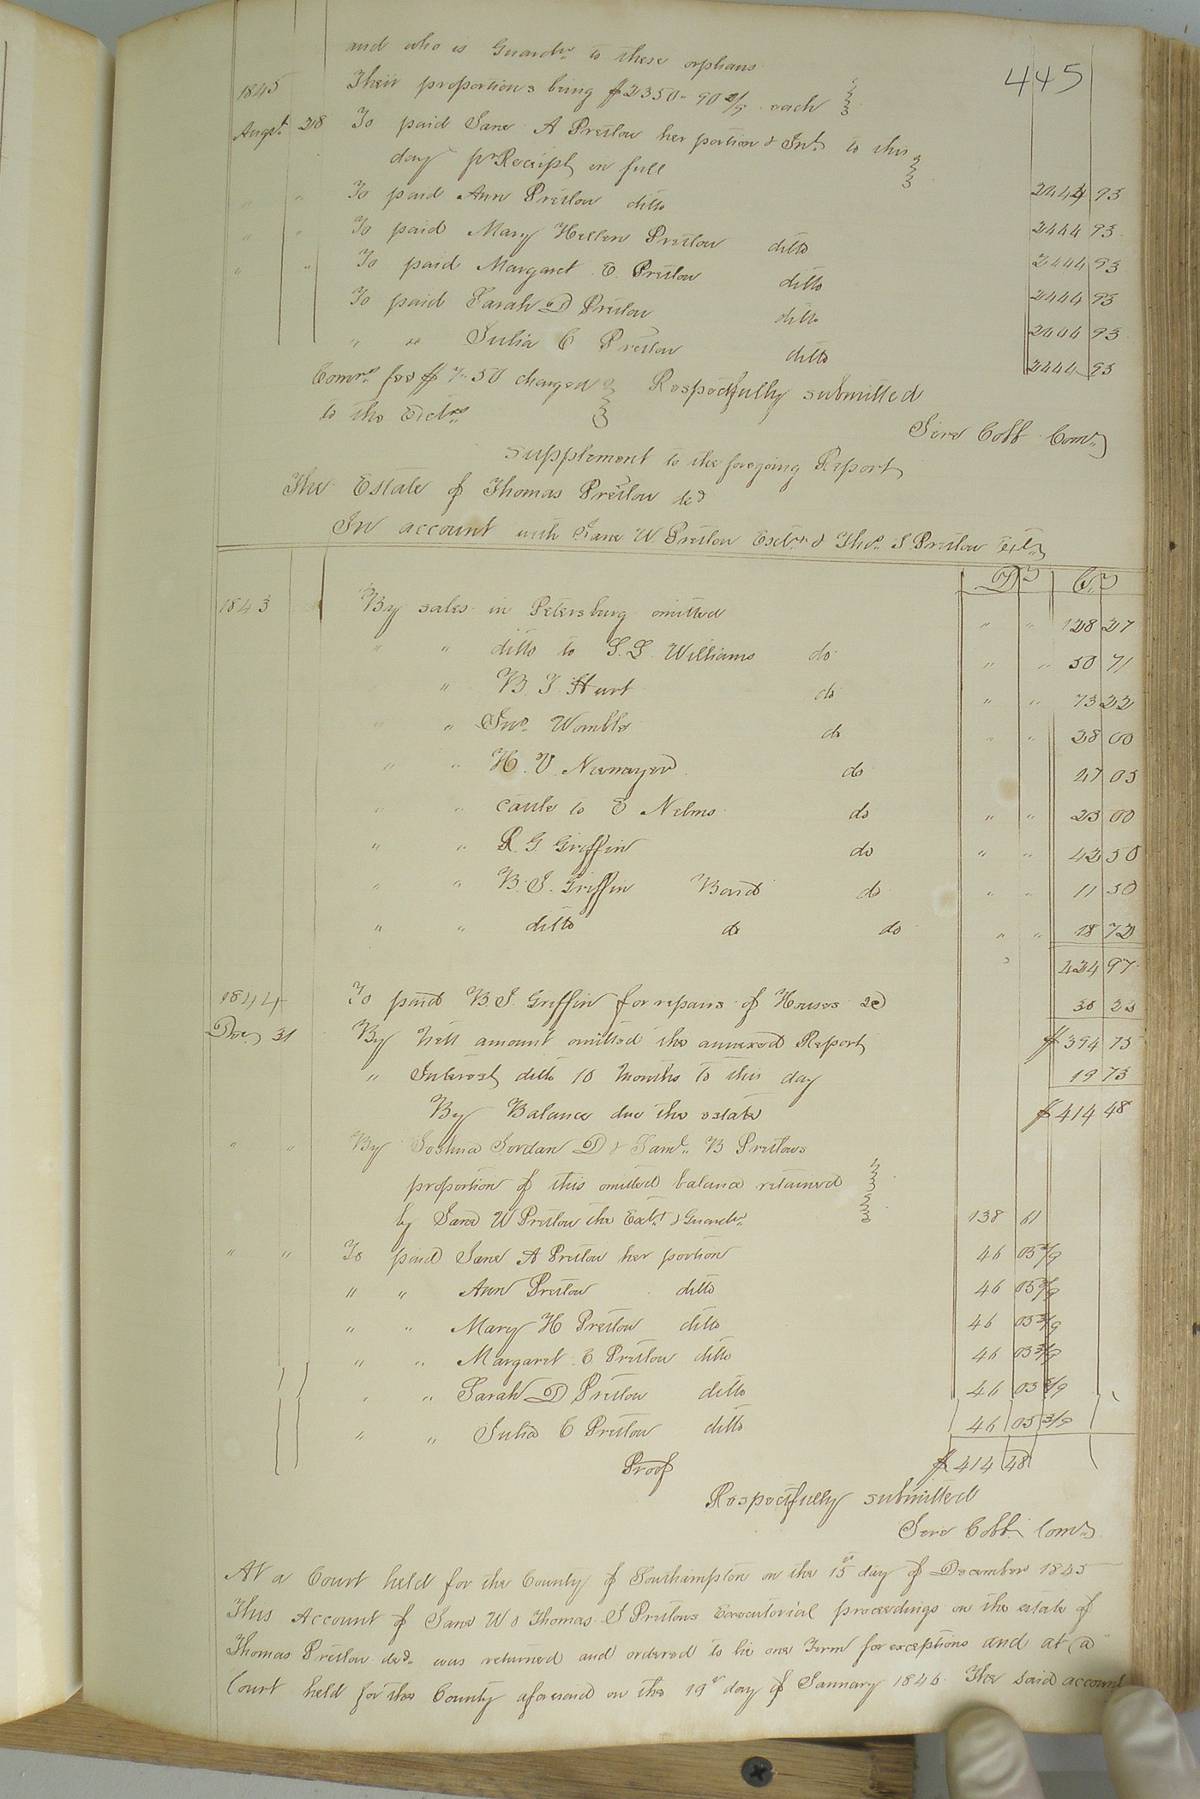 445
and who is Guardn to these orphans
1845 Their proportions being $2350.90 2/9 each
Augst 28 To paid Jane A Pretlow her portion & Int. to this
day pr Receipt in full 2444 93
" " To paid Ann Pretlow ditto 2444 93
" " To paid Mary Hellen Pretlow ditto 2444 93
" " To paid Margaret E. Pretlow ditto 2444 93
To paid Sarah D Pretlow ditto 2444 93
" " Julia C Pretlow ditto 2444 93
Comrs fee $7.50 charged Respectfully submitted
to the Exctrs
Jere Cobb Comr
supplement to the foregoing Report
The Estate of Thomas Pretlow decd
In account with Jane W Pretlow Exctrx & Thos. J. Pretlow Extr
Dr Cr
1843 By sales in Petersburg omitted " " 128 27
" " ditto to S. S. Williams do " " 50 71
" B. T. Hurt do " " 73 22
" " Jno. Womble do " " 28 00
" " H. V. Niemayer do 47 05
" " cattle to E Nelms do " " 23 00
" " R. G Griffin do " " 42 50
" " B. S. Griffin Board do " " 11 50
" " ditto do do " " 18 72
424 97
1844 To paid B. S. Griffin for repairs of Houses &c 30 22
Dec 31 By nett amount omitted the annexed Report $394 75
" Interest ditto 10 Months to this day 19 73
By Balance due the estate $414 48
" " By Joshua Jordan D & Saml. B Pretlows
proportion of this omitted balance retained
by Jane W Pretlow the Extx & Guardn 138 11
" " To paid Jane A Pretlow her portion 46 05 3/9
" " Ann Pretlow ditto 46 05 3/9
" " Mary H Pretlow ditto 46 05 3/9
" " Margaret E Pretlow ditto 46 05 3/9
" " Sarah D Pretlow ditto 46 05 3/9
" " Julia C Pretlow ditto 46 05 3/9
Proof $414 48
Respectfully submitted
Jere Cobb Comr
At a Court held for the County of Southampton on the 15th day of December 1845
This Account of Jane W & Thomas J Pretlows Executorial proceedings on the estate of
Thomas Pretlow decd. was returned and ordered to lie one Term for exceptions and at a
Court held for the County aforesaid on the 19th day of January 1846. The said account